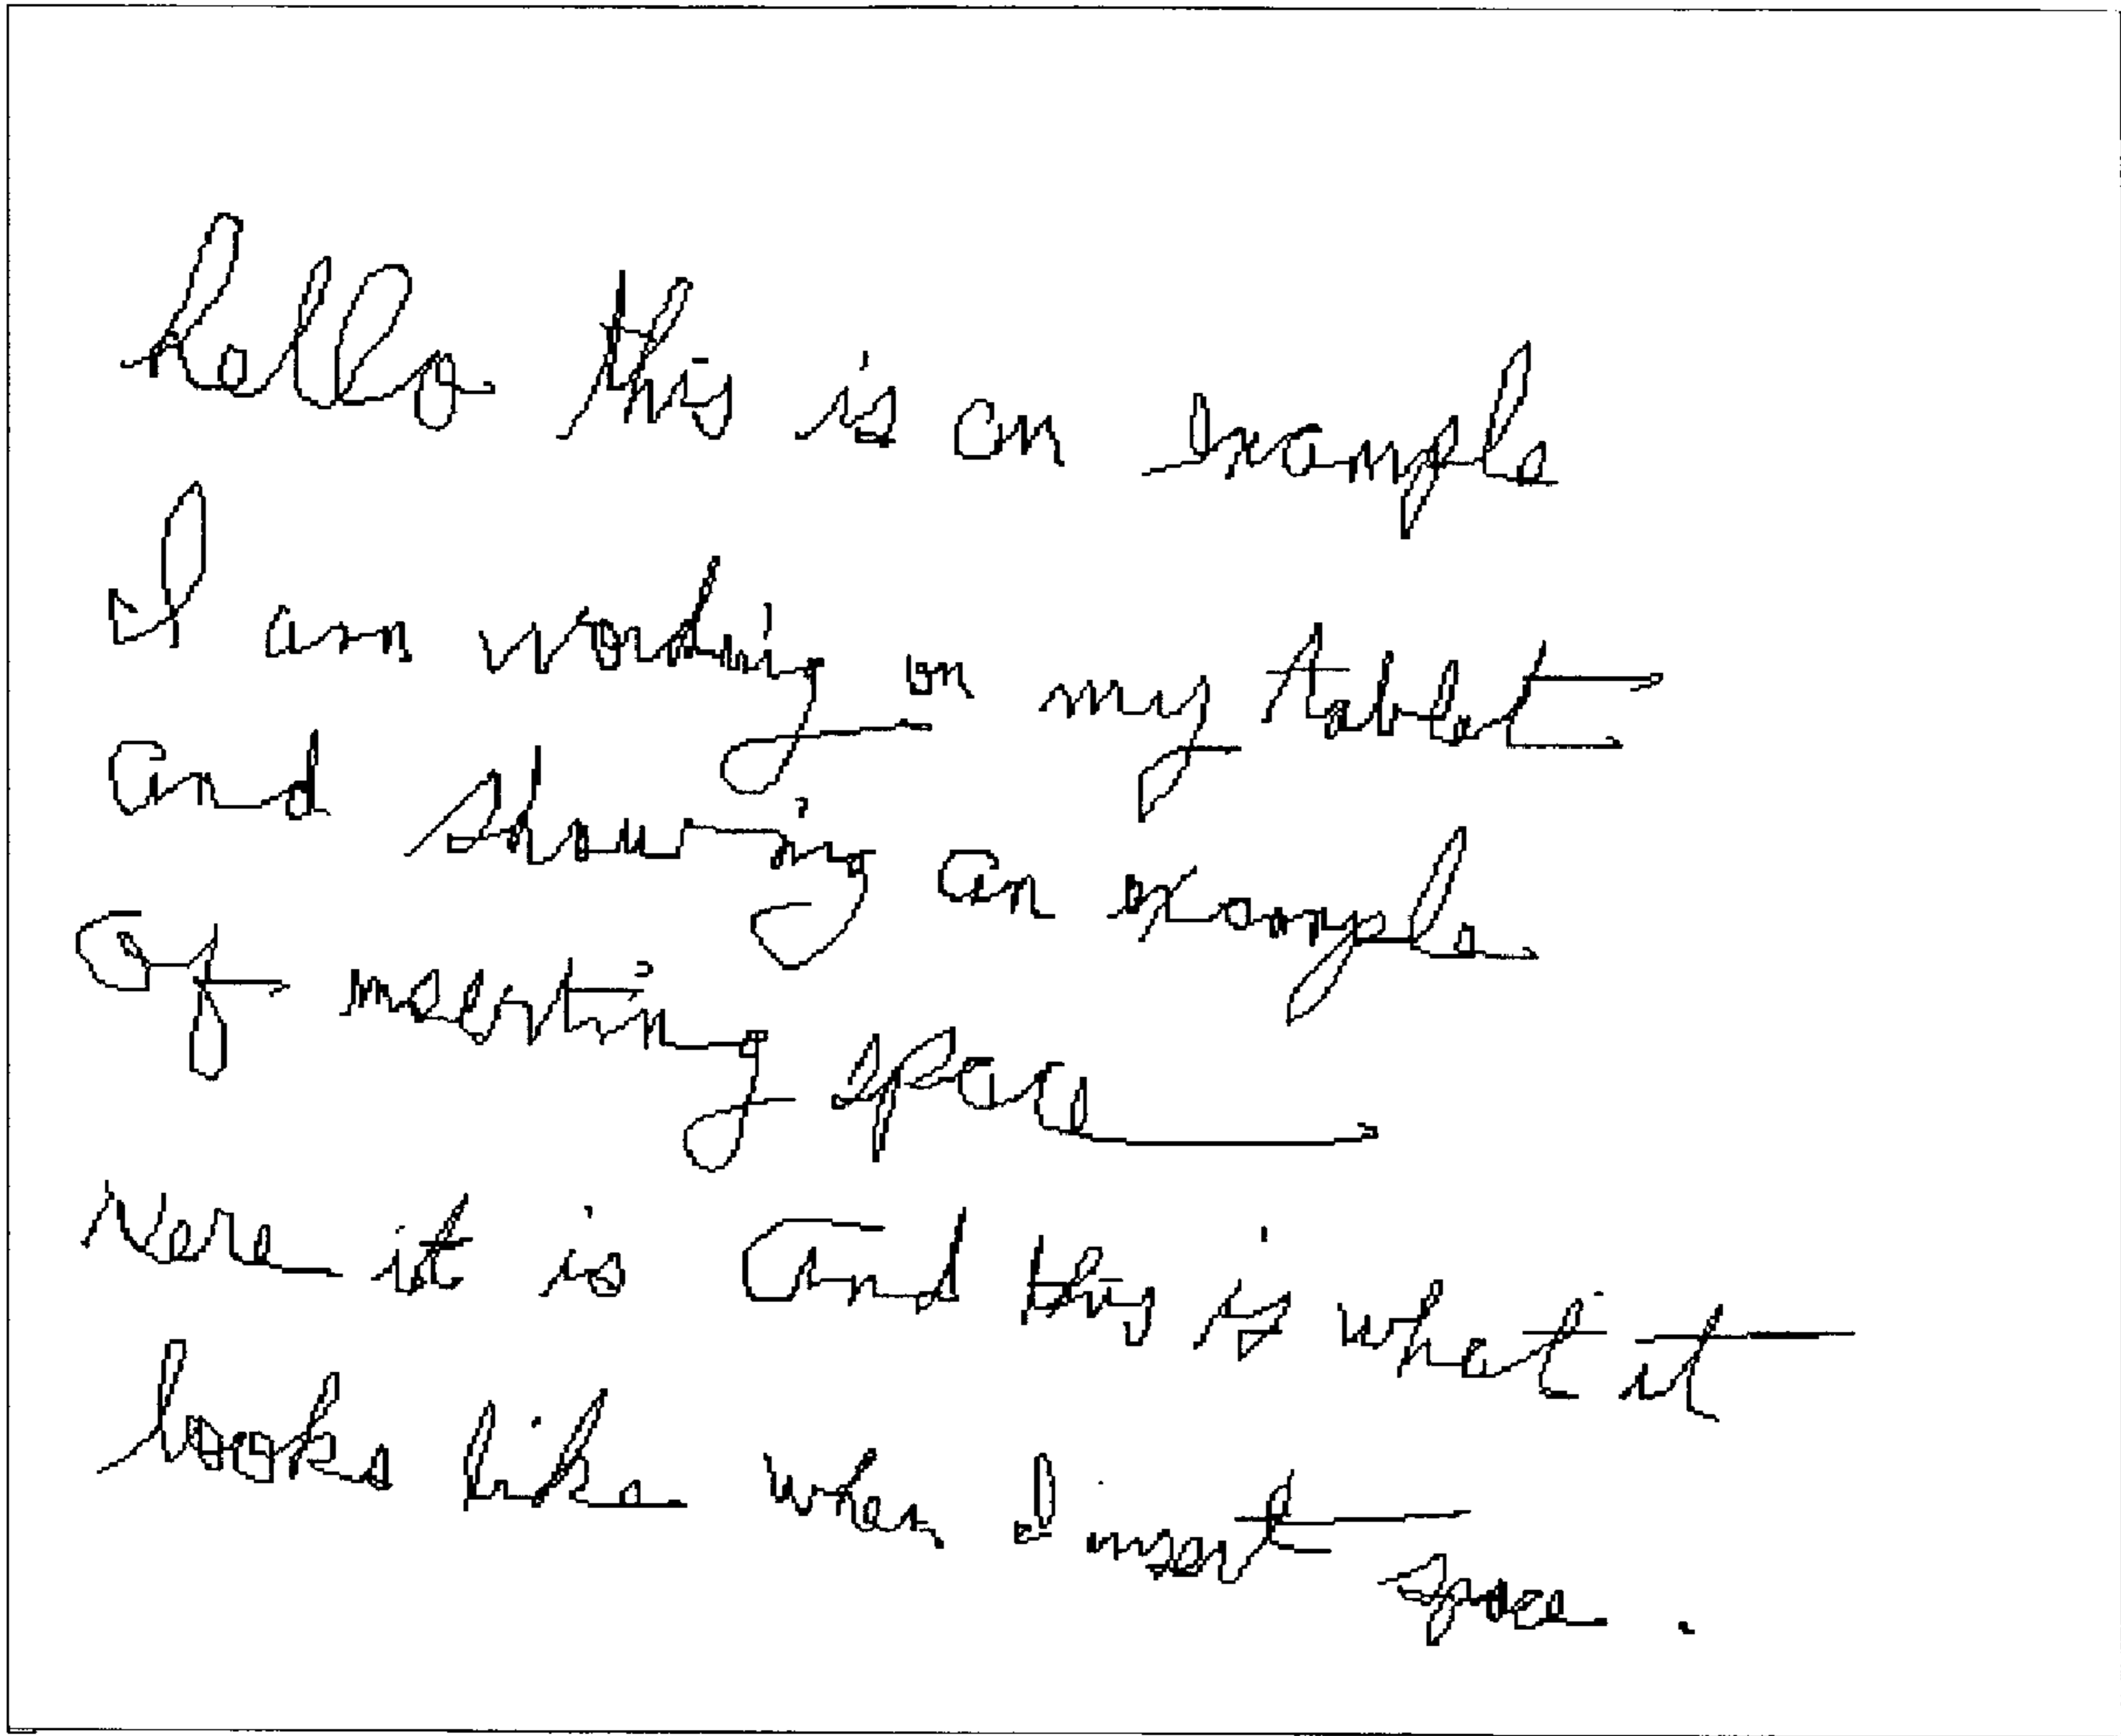 hello this is an example
I am working on my tablet
and showing an example
of inserting space
Here it is and this is what it
looks like when I insert
space.